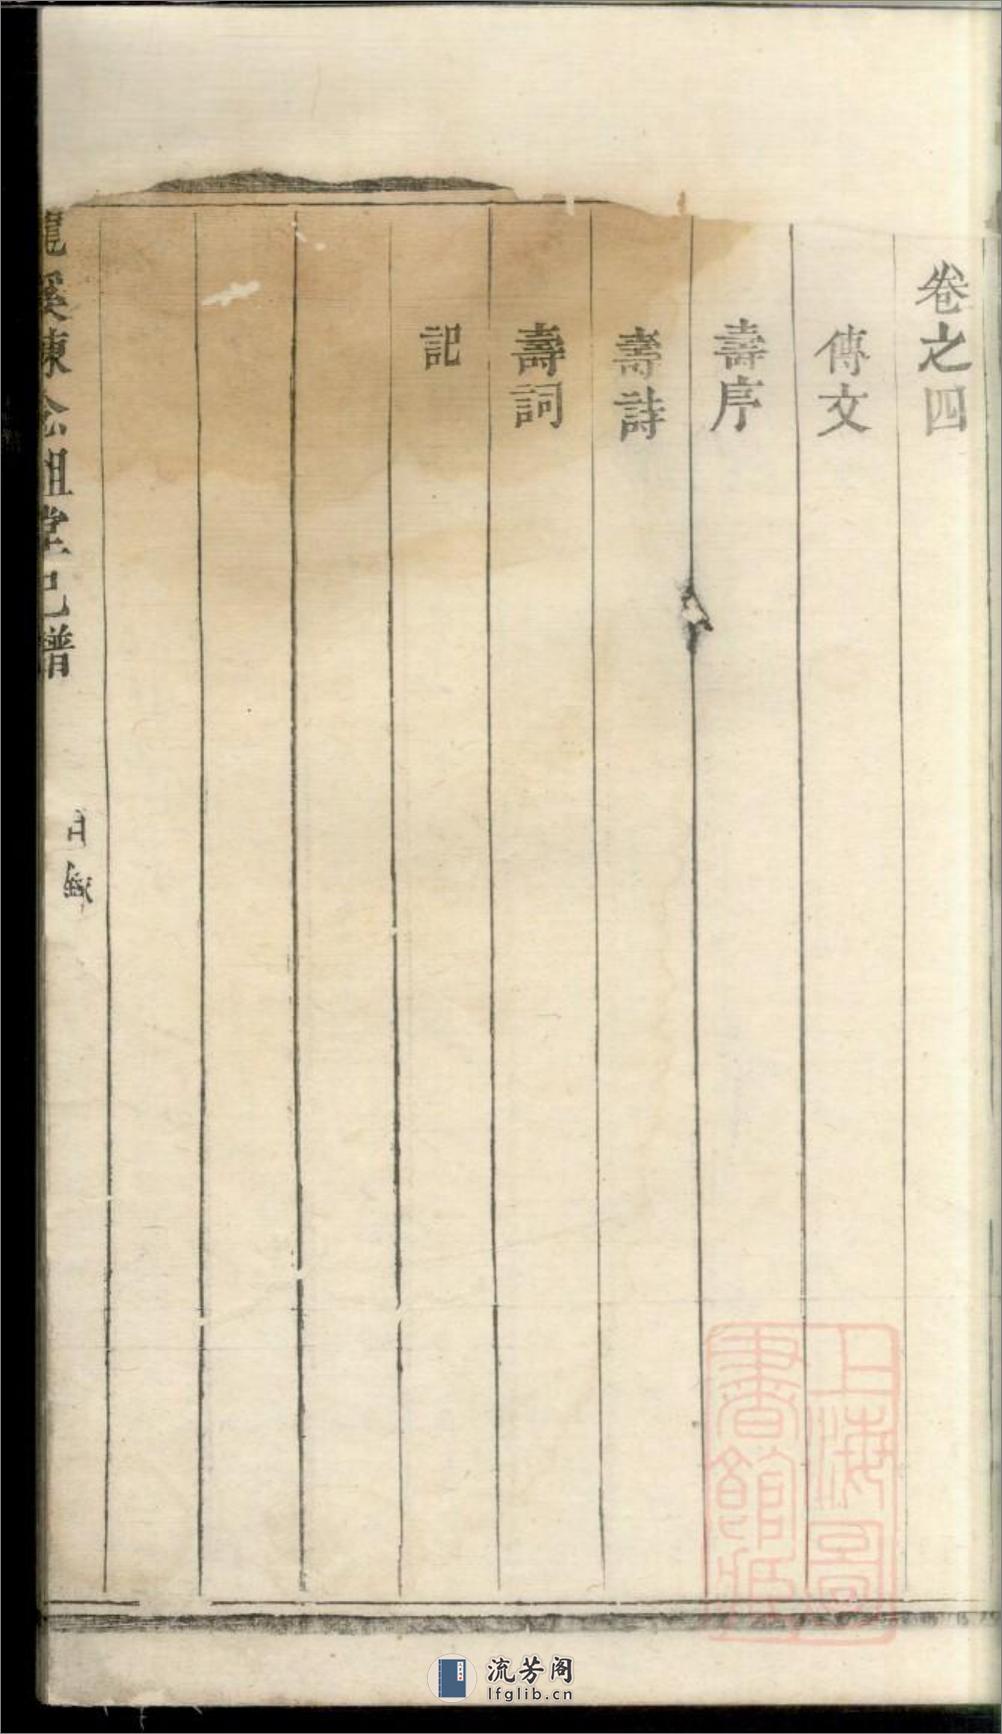 卷之四
傳文
壽序
壽詩
壽詞
記
龍溪陳念祖堂己譜
目錄
上海圖
書館藏
流芳阁
lfglib.cn